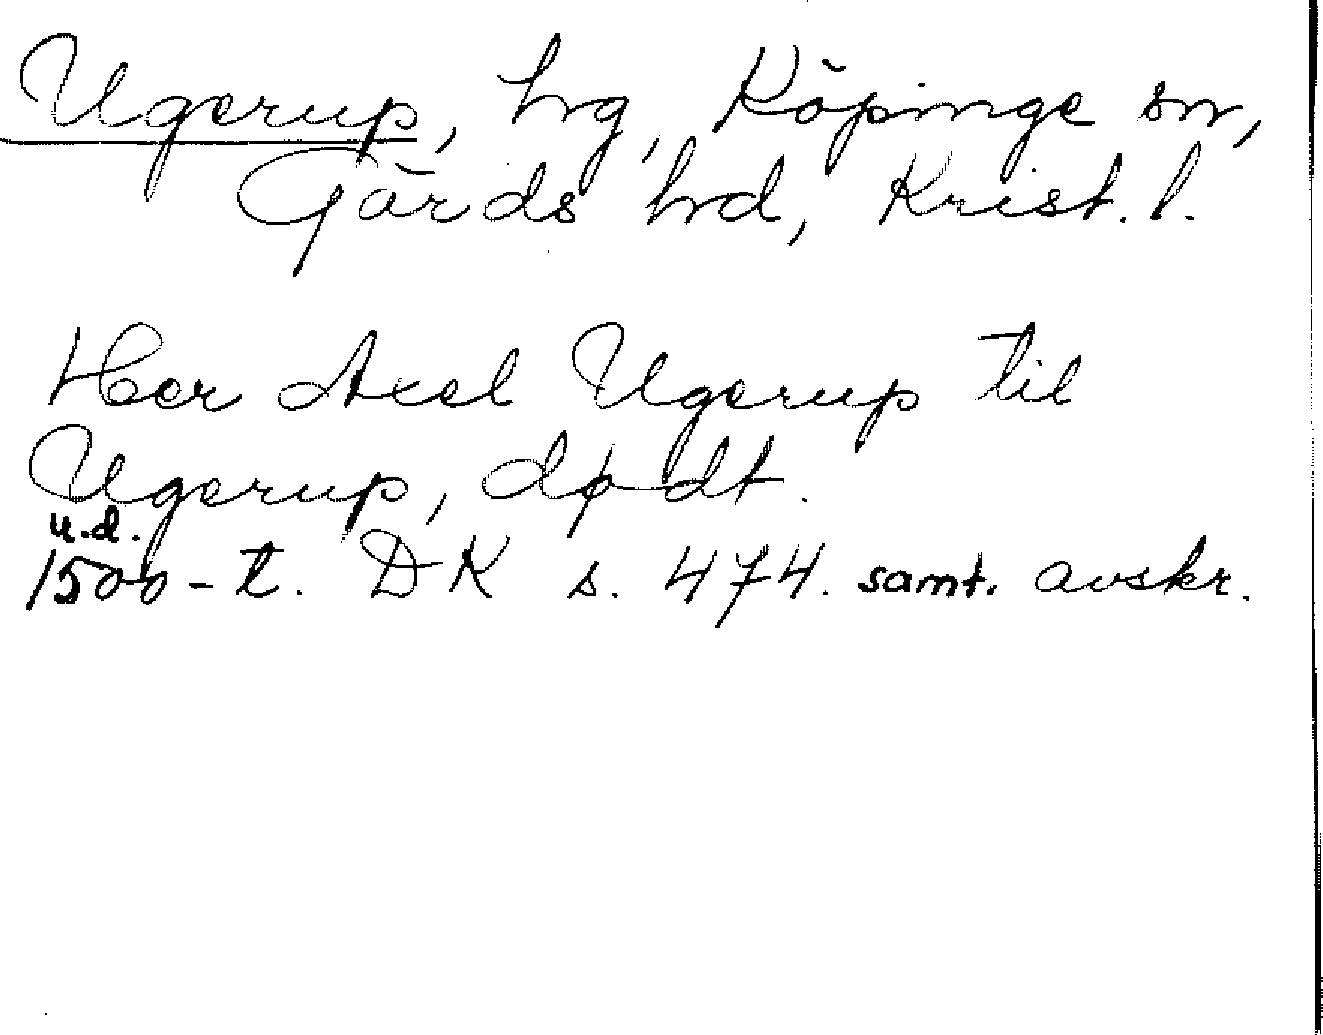 Ugerup, hrg, Köpinge sn,
Gärds hrd, Krist. l.
Herr Axel Ugerup til
Ugerup, dødt.
u.d.
1500-t. DK s. 474. samt. avskr.